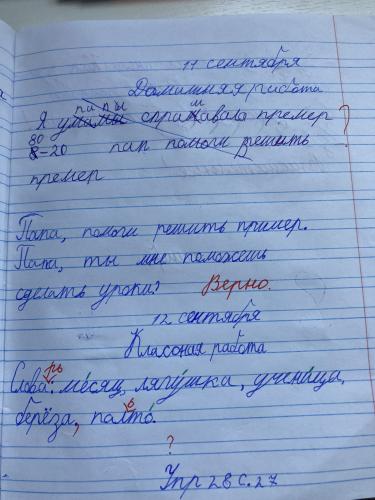 11 сентября
Домашняя работа
папы
Я у мамы спрашавала премер ?
80
8-20 пап помоги решить
премер
Папа, помоги решить пример.
Папа, ты мне поможешь
сделать уроки? Верно.
12 сентября
Класоная работа
рь
Слова: ме́сяц, лягу́шка, учени́ца,
берёза, палто́.
ь
?
Упр 28 с. 27